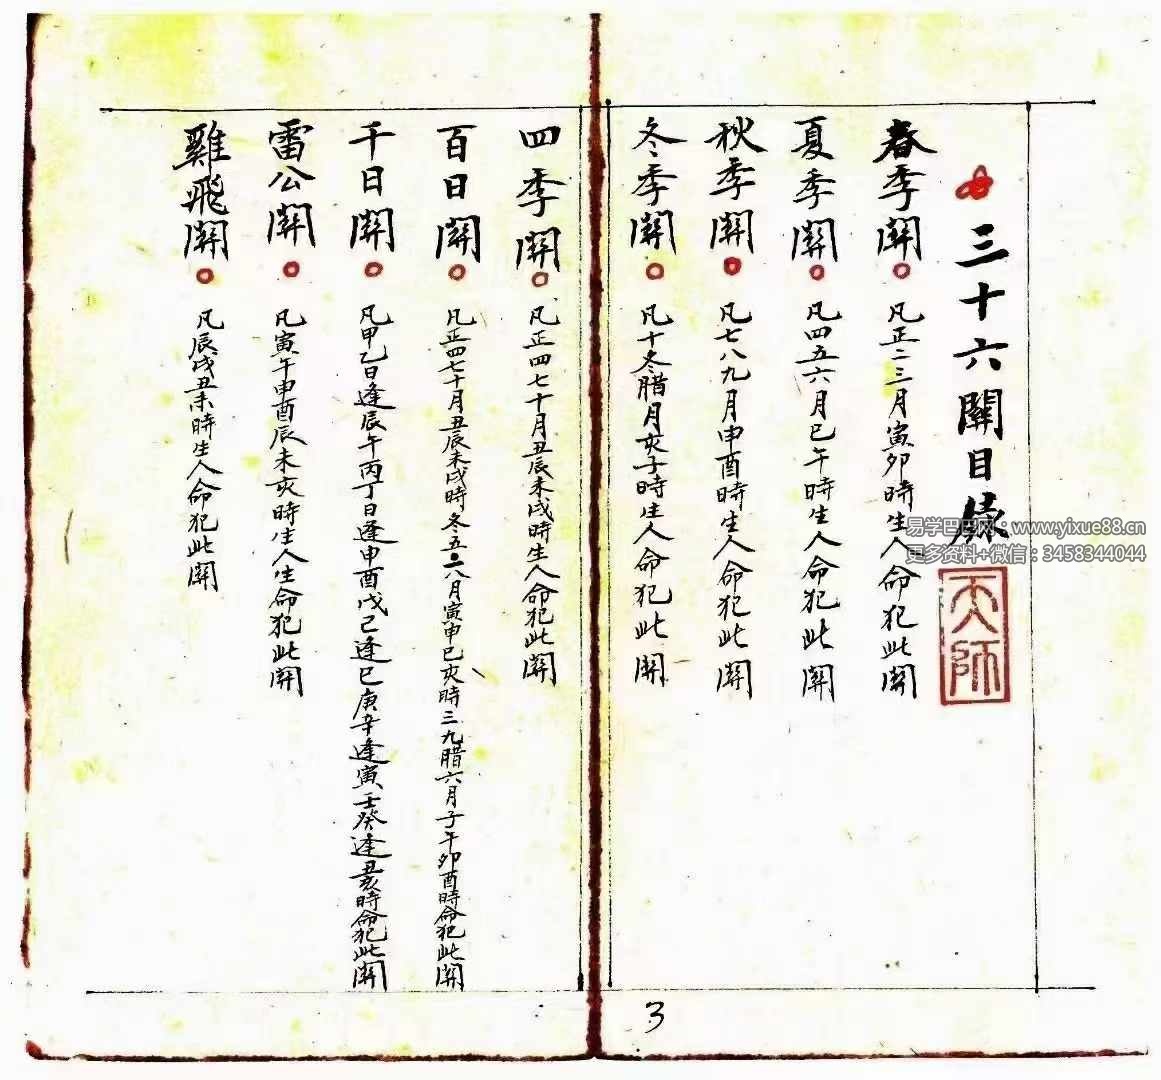 三十六關目錄
天師
春季關 凡正二三月寅卯時生人命犯此關
夏季關 凡四五六月巳午時生人命犯此關
秋季關 凡七八九月申酉時生人命犯此關
冬季關 凡十冬腊月亥子時生人命犯此關
四季關 凡正四七十月丑辰未戌時生人命犯此關
百日關 凡正四七十月丑辰未戌時冬五二八月寅申巳亥時三九腊六月子午卯酉時命犯此關
千日關 凡甲乙日逢辰午丙丁日逢申酉戊己逢巳庚辛逢寅壬癸逢丑亥時命犯此關
雷公關 凡寅午申酉辰未亥時生人生命犯此關
雞飛關 凡辰戌丑未時生人命犯此關
3
易学巴巴网：www.yixue88.cn
更多资料+微信：3458344044